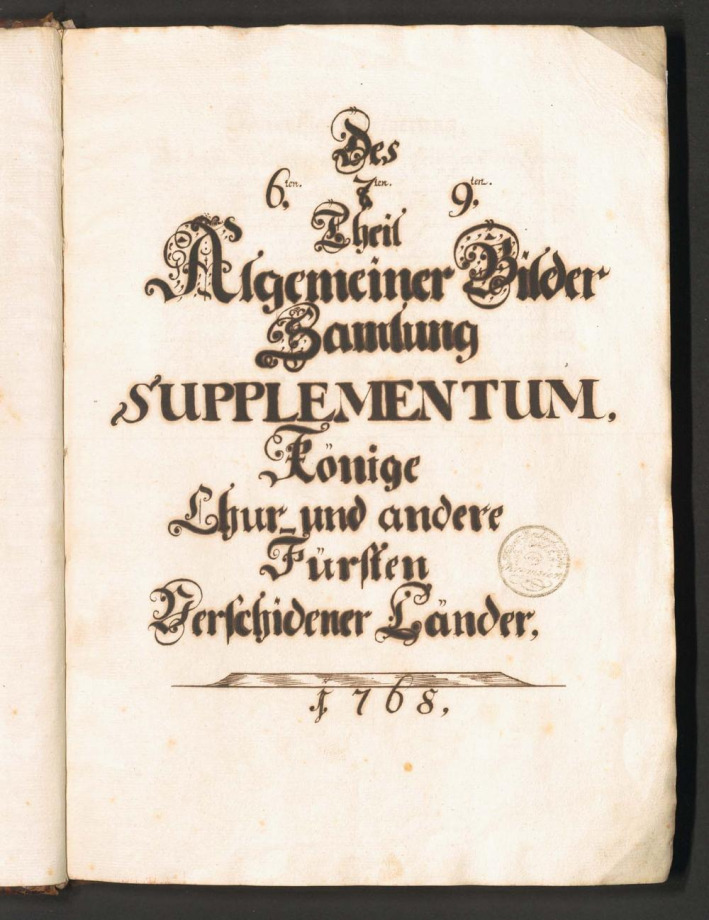 Des
6.ten. 7.ten. 9.ten.
Theil
Algemeiner Bilder
Samlung
SUPPLEMENTUM,
Könige
Chur_und andere
Fürsten
Verschidener Länder,
1768,